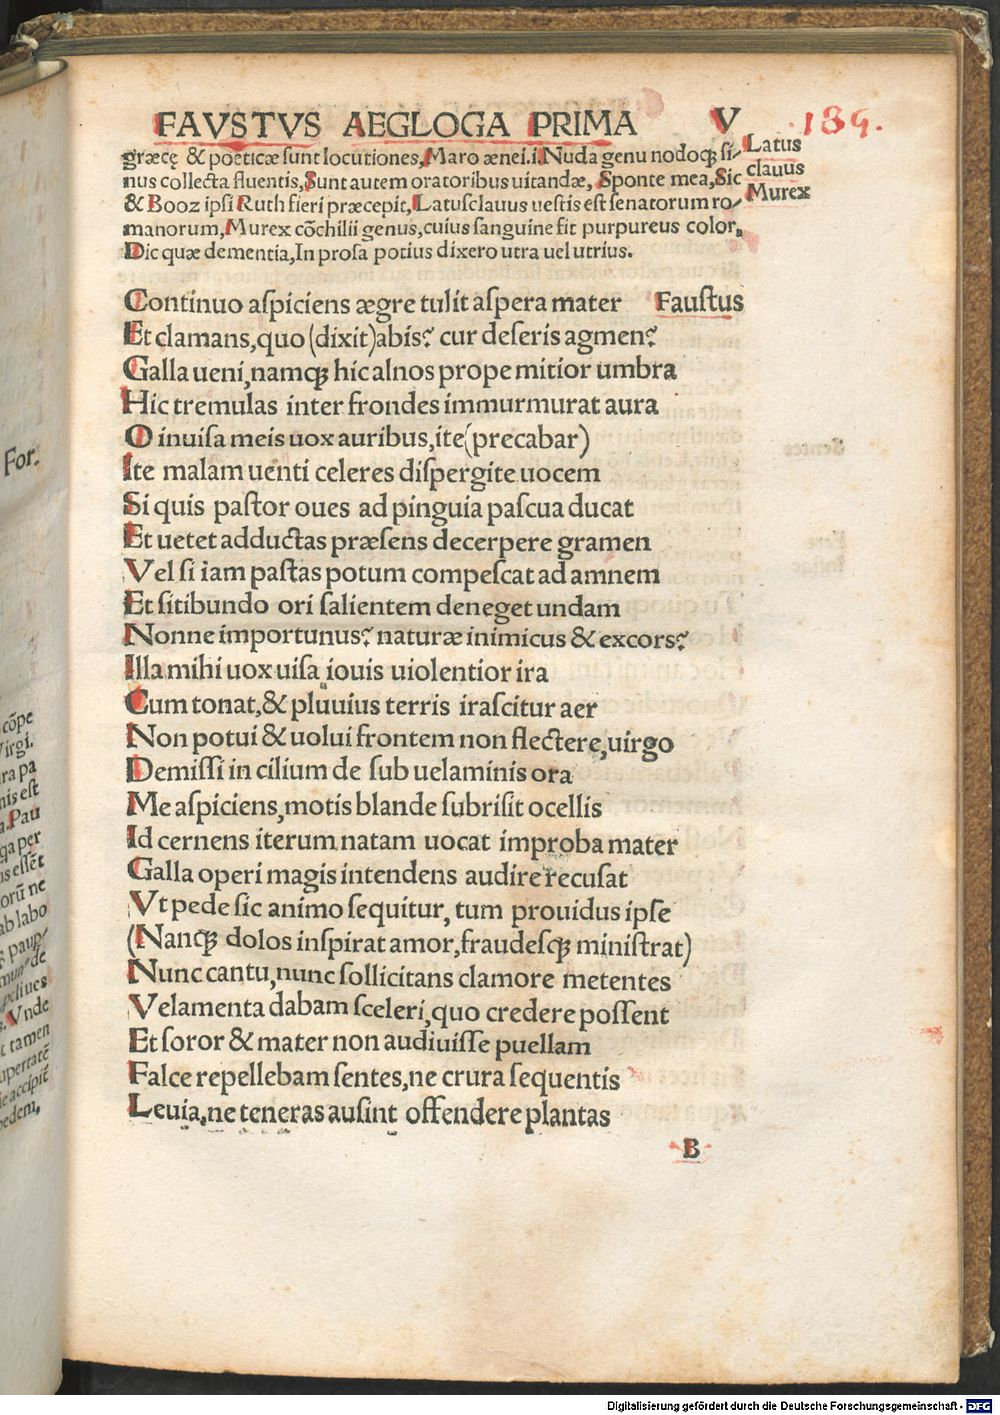 FAVSTVS AEGLOGA PRIMA V
189.
græcę & poeticæ sunt locutiones, Maro ænei.i. Nuda genu nodoqꝫ si-
nus collecta fluentis, Sunt autem oratoribus uitandæ, Sponte mea, Sic
& Booz ipsi Ruth fieri præcepit, Latusclauus uestis est senatorum ro-
manorum, Murex cōchilii genus, cuius sanguine fit purpureus color,
Dic quæ dementia, In prosa potius dixero utra uel utrius.
Latus
clauus
Murex
Continuo aspiciens ægre tulit aspera mater Faustus
Et clamans, quo (dixit) abis? cur deseris agmen?
Galla ueni, namqꝫ hic alnos prope mitior umbra
Hic tremulas inter frondes immurmurat aura
O inuisa meis uox auribus, ite (precabar)
Ite malam uenti celeres dispergite uocem
Si quis pastor oues ad pinguia pascua ducat
Et uetet adductas præsens decerpere gramen
Vel si iam pastas potum compescat ad amnem
Et sitibundo ori salientem deneget undam
Nonne importunus? naturæ inimicus & excors?
Illa mihi uox uisa iouis uiolentior ira
Cum tonat, & pluuius terris irascitur aer
Non potui & uolui frontem non flectere, uirgo
Demissi in cilium de sub uelaminis ora
Me aspiciens, motis blande subrisit ocellis
Id cernens iterum natam uocat improba mater
Galla operi magis intendens audire recusat
Vt pede sic animo sequitur, tum prouidus ipse
(Nanqꝫ dolos inspirat amor, fraudesqꝫ ministrat)
Nunc cantu, nunc sollicitans clamore metentes
Velamenta dabam sceleri, quo credere possent
Et soror & mater non audiuisse puellam
Falce repellebam sentes, ne crura sequentis
Leuia, ne teneras ausint offendere plantas
B
For.
cōpe
Virgi.
ra pa
nis est
a. Pau
ga per
is essēt
orū ne
ab labo
de
Vnde
t tamen
upertatē
ie accipit
pedem,
Digitalisierung gefördert durch die Deutsche Forschungsgemeinschaft - DFG